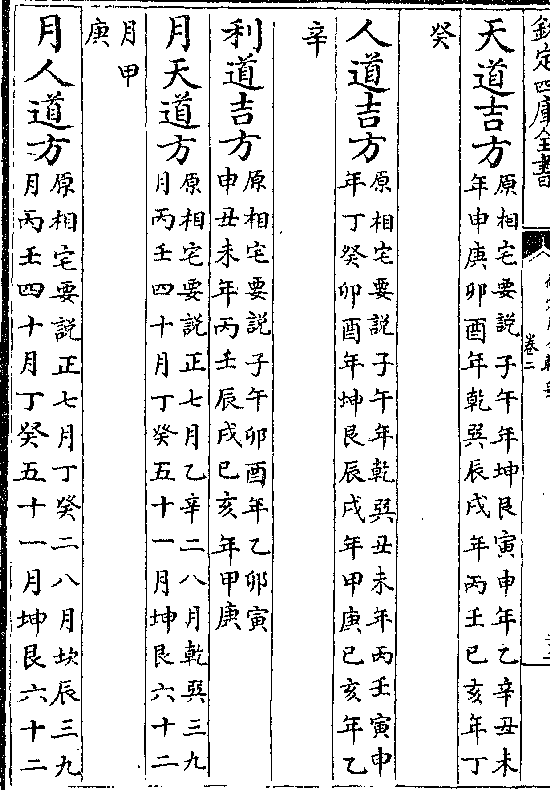 欽定四庫全書
卷二
天道吉方
原相宅要說子午年坤艮寅申年乙辛丑未
年申庚卯酉年乾巽辰戌年丙壬巳亥年丁
癸
人道吉方
原相宅要說子午年乾巽丑未年丙壬寅申
年丁癸卯酉年坤艮辰戌年甲庚巳亥年乙
辛
利道吉方
原相宅要說子午卯酉年乙卯寅
申丑未年丙壬辰戌巳亥年甲庚
月天道方
原相宅要說正七月乙辛二八月乾巽三九
月丙壬四十月丁癸五十一月坤艮六十二
月甲
庚
月人道方
原相宅要說正七月丁癸二八月坎辰三九
月丙壬四十月丁癸五十一月坤艮六十二